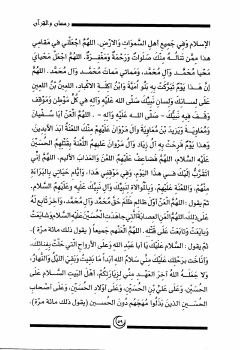 رمضان والقرآن
الإسلام وفي جميع أهل السموات والأرض. اللهم اجعلني في مقامي
هذا ممن تناله منك صلوات ورحمة ومغفرة. اللهم اجعل محياي
محيا محمد وآل محمد، ومماتي ممات محمد وآل محمد. اللهم
إن هذا يوم تبركت به بنو أمية وابن آكلة الأكباد، اللعين بن اللعين
على لسانك ولسان نبيك صلى الله عليه وآله في كل موطن وموقف
وقف فيه نبيك - صلى الله عليه وآله - . اللهم العن أبا سفيان
ومعاوية ويزيد بن معاوية وآل مروان عليهم منك اللعنة أبد الآبدين.
وهذا يوم فرحت به آل زياد وآل مروان عليهم اللعنة بقتلهم الحسين
عليه السلام، اللهم فضاعف عليهم اللعن والعذاب الأليم. اللهم إني
أتقرب إليك في هذا اليوم، وفي موقفي هذا، وأيام حياتي بالبراءة
منهم، واللعنة عليهم، وبالموالاة لنبيك وآل نبيك عليه وعليهم السلام.
ثم يقول: اللهم العن أول ظالم ظلم حق محمد وآل محمد، وآخر تابع له
على ذلك، اللهم العن العصابة التي جاهدت الحسين عليه السلام وشايعت
وبايعت وتابعت على قتله. اللهم العنهم جميعاً (يقول ذلك مائة مرة).
ثم يقول: السلام عليك يا أبا عبد الله وعلى الأرواح التي حلت بفنائك،
وأناخت برحلك عليك مني سلام الله أبداً ما بقيت وبقي الليل والنهار،
ولا جعله الله آخر العهد مني لزيارتكم، أهل البيت السلام على
الحسين، وعلى علي بن الحسين، وعلى أولاد الحسين، وعلى أصحاب
الحسين الذين بذلوا مهجهم دون الحسين (يقول ذلك مائة مرة).